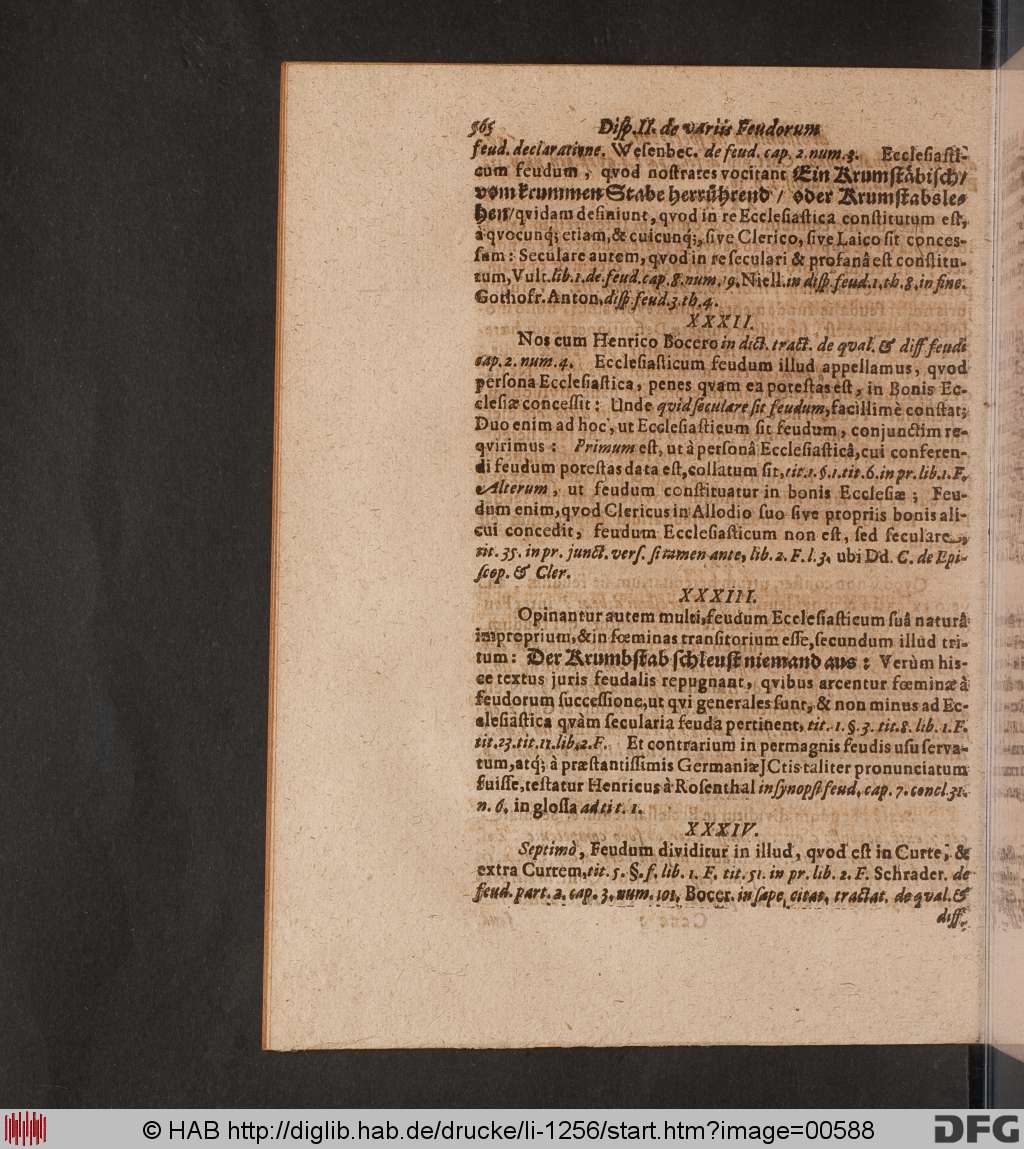 565 Disp. II. de variis Feudorum
feud. declaratione. Wesenbec. de feud. cap. 2. num. 4. Ecclesiasti-
cum feudum, qvod nostrates vocitant Ein Krumstäbisch/
vom krummen Stabe herrührend / oder Krumstabsle-
hen/ qvidam definiunt, qvod in re Ecclesiastica constitutum est,
à qvocunq́; etiam, & cuicunq́;, sive Clerico, sive Laico sit conces-
sum: Seculare autem, qvod in re seculari & profanâ est constitu-
tum, Vult. lib. 1. de feud. cap. 8. num. 19. Niell. in disp. feud. 1. th. 8. in fine.
Gothofr. Anton. disp. feud. 3. th. 4.
XXXII.
Nos cum Henrico Bocero in dict. tract. de qval. & diff. feudi
cap. 2. num. 4. Ecclesiasticum feudum illud appellamus, qvod
persona Ecclesiastica, penes qvam ea potestas est, in Bonis Ec-
clesiæ concessit: Unde qvid seculare sit feudum, facillimè constat;
Duo enim ad hoc, ut Ecclesiasticum sit feudum, conjunctim re-
qvirimus: Primum est, ut à personâ Ecclesiasticâ, cui conferen-
di feudum potestas data est, collatum sit, tit. 1. §. 1. tit. 6. in pr. lib. 1. F.
Alterum, ut feudum constituatur in bonis Ecclesiæ; Feu-
dum enim, qvod Clericus in Allodio suo sive propriis bonis ali-
cui concedit, feudum Ecclesiasticum non est, sed seculare,
tit. 35. in pr. junct. vers. si tamen ante, lib. 2. F. l. 3. ubi Dd. C. de Epi-
scop. & Cler.
XXXIII.
Opinantur autem multi, feudum Ecclesiasticum suâ naturâ
improprium, & in fœminas transitorium esse, secundum illud tri-
tum: Der Krumbstab schleust niemand aus: Verùm his-
ce textus juris feudalis repugnant, qvibus arcentur fœminæ à
feudorum successione, ut qvi generales sunt, & non minus ad Ec-
clesiastica qvàm secularia feuda pertinent, tit. 1. §. 3. tit. 8. lib. 1. F.
tit. 23. tit. 11. lib. 2. F. Et contrarium in permagnis feudis usu serva-
tum, atq́; à præstantissimis Germaniæ JCtis taliter pronunciatum
fuisse, testatur Henricus à Rosenthal in synopsi feud. cap. 7. concl. 31.
n. 6. in glossa ad tit. 1.
XXXIV.
Septimò, Feudum dividitur in illud, qvod est in Curte, &
extra Curtem, tit. 5. §. f. lib. 1. F. tit. 51. in pr. lib. 2. F. Schrader. de
feud. part. 2. cap. 3. num. 101. Bocer. in sæpe citat. tractat. de qval. &
diff.
© HAB http://diglib.hab.de/drucke/li-1256/start.htm?image=00588
DFG